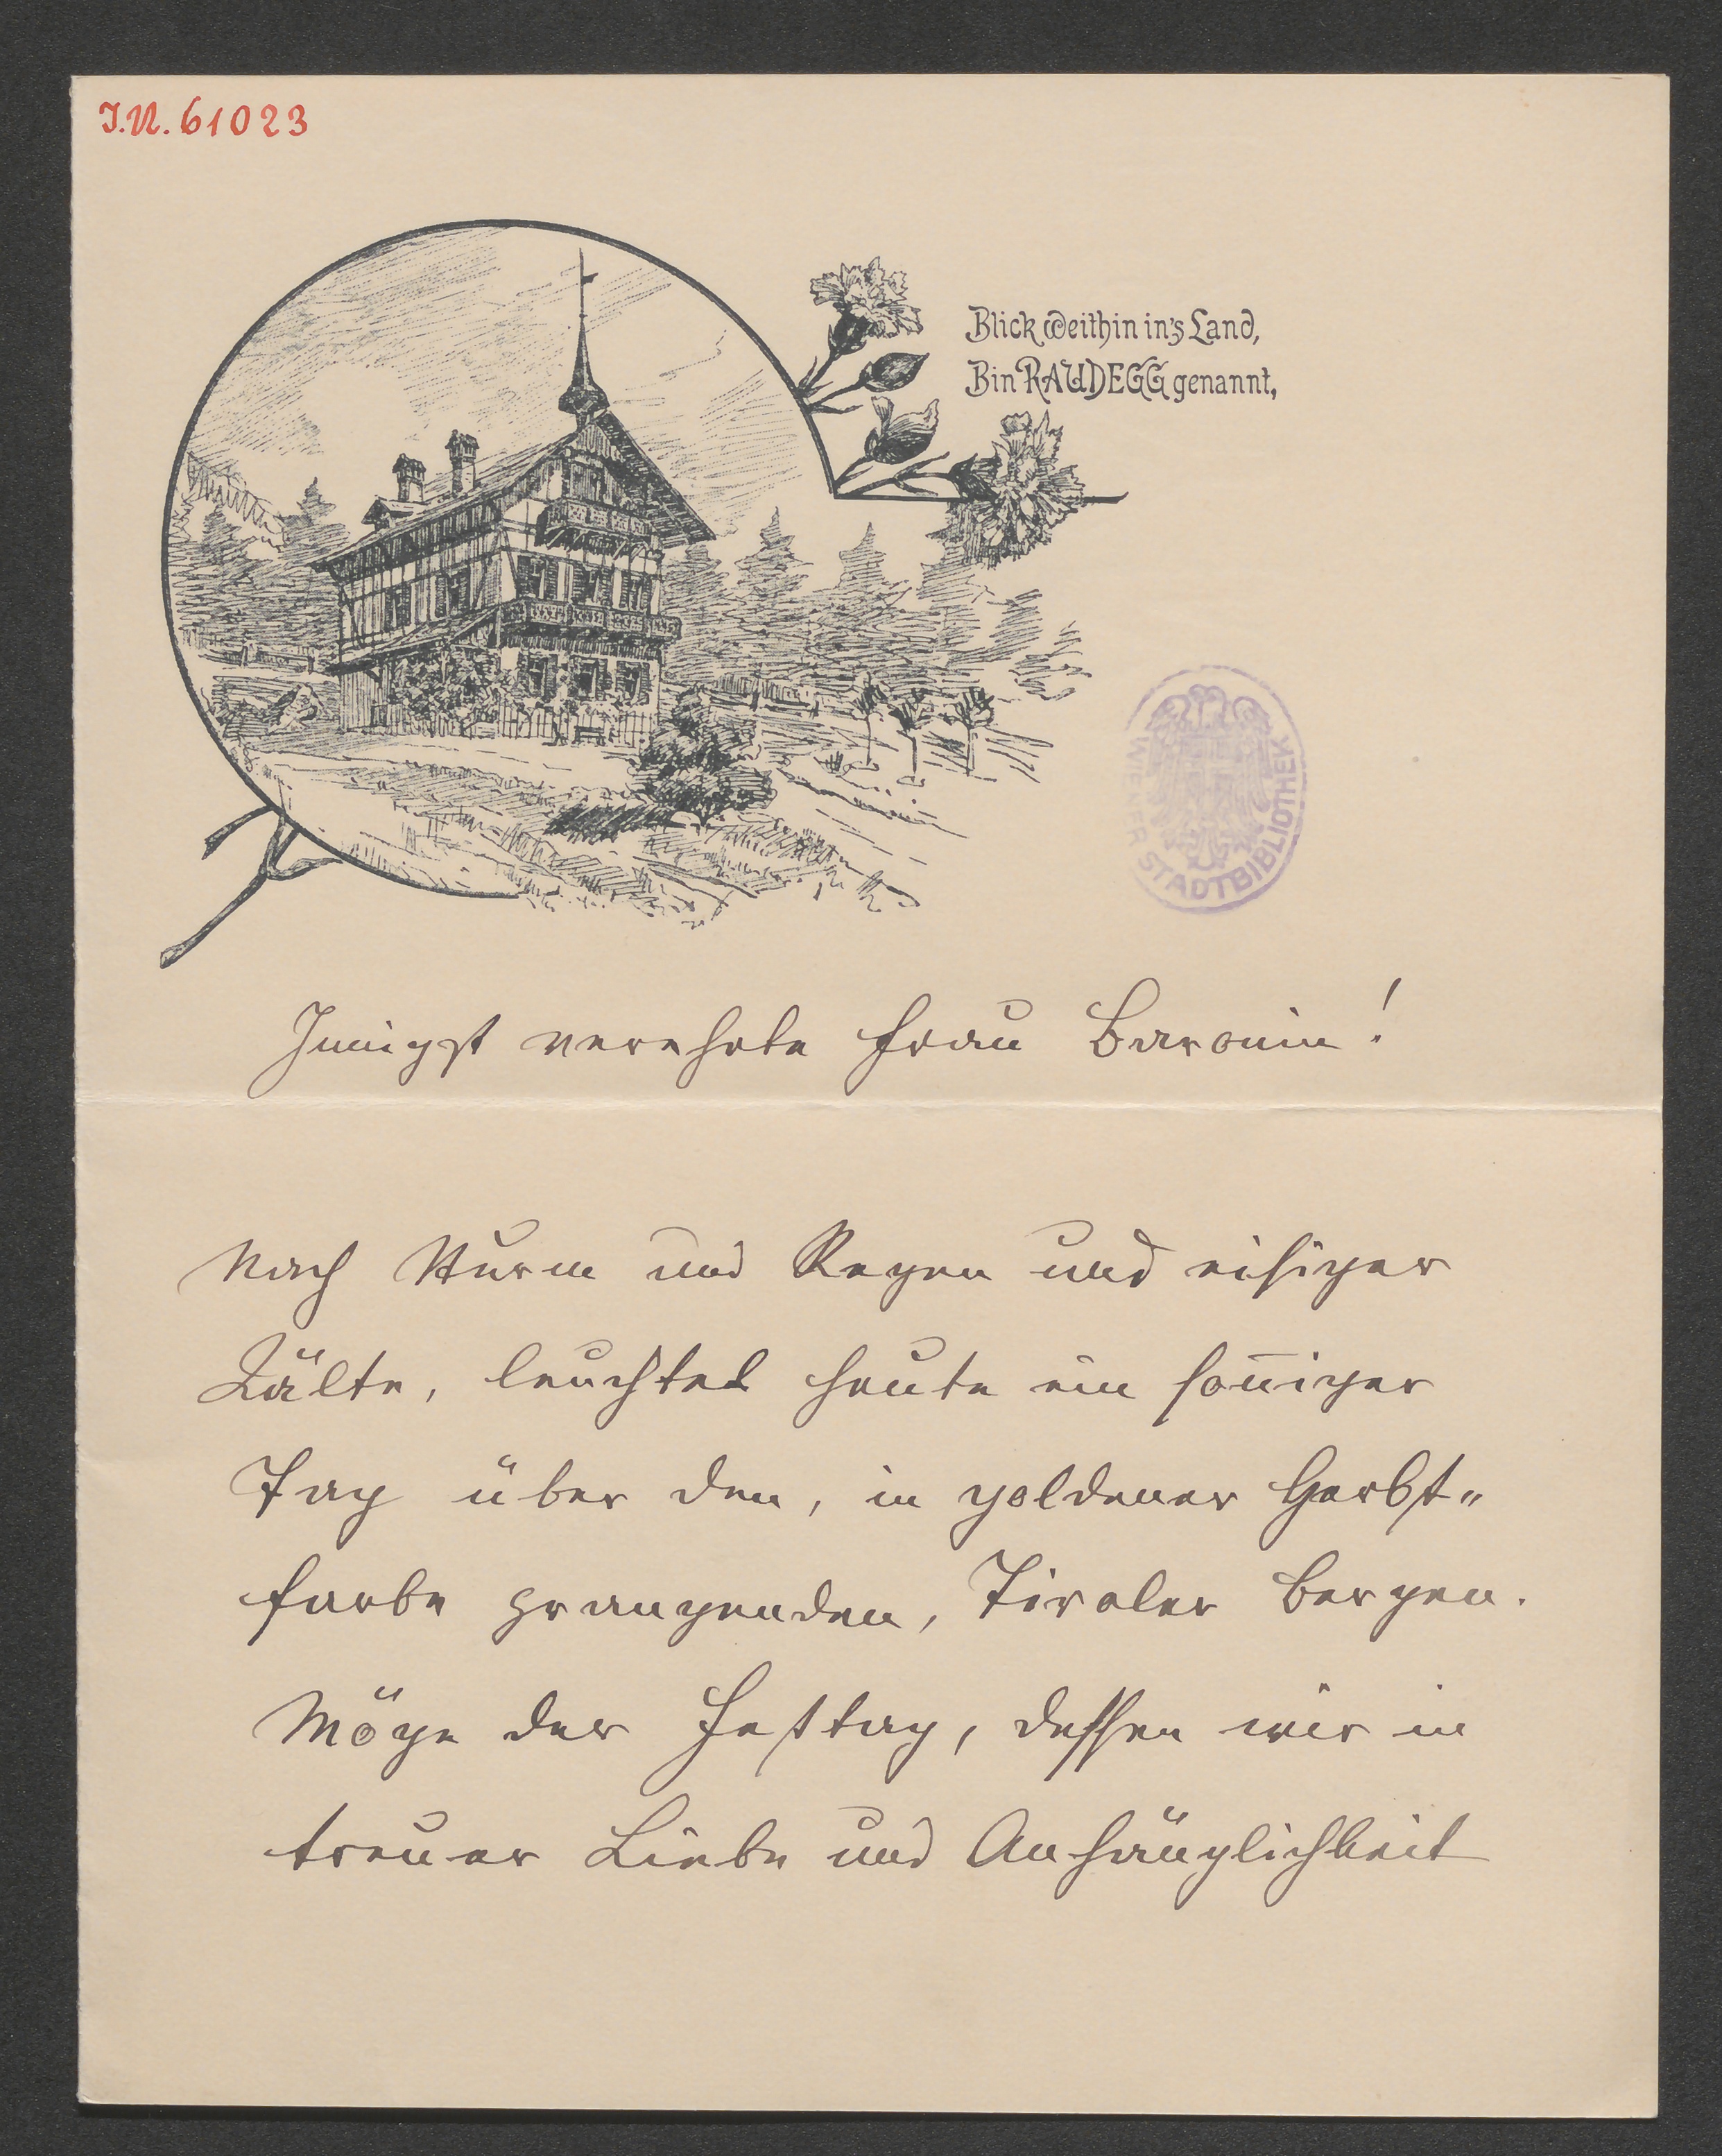 J.N. 61023
Blick weithin in's Land,
Bin RAUDEGG genannt,
WIENER STADTBIBLIOTHEK
Innigst verehrte Frau Baronin!
Nach Sturm und Regen und eisiger
Kälte, leuchtet heute ein soñiger
Tag über den, in goldener Herbst„
farbe prangenden, Tiroler Bergen.
Möge der Festtag, dessen wir in
treuer Liebe und Anhänglichkeit